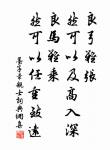 良弓難張
然可以及高入深
良馬難乘
然可以任重致遠
墨子·親士詞典網集